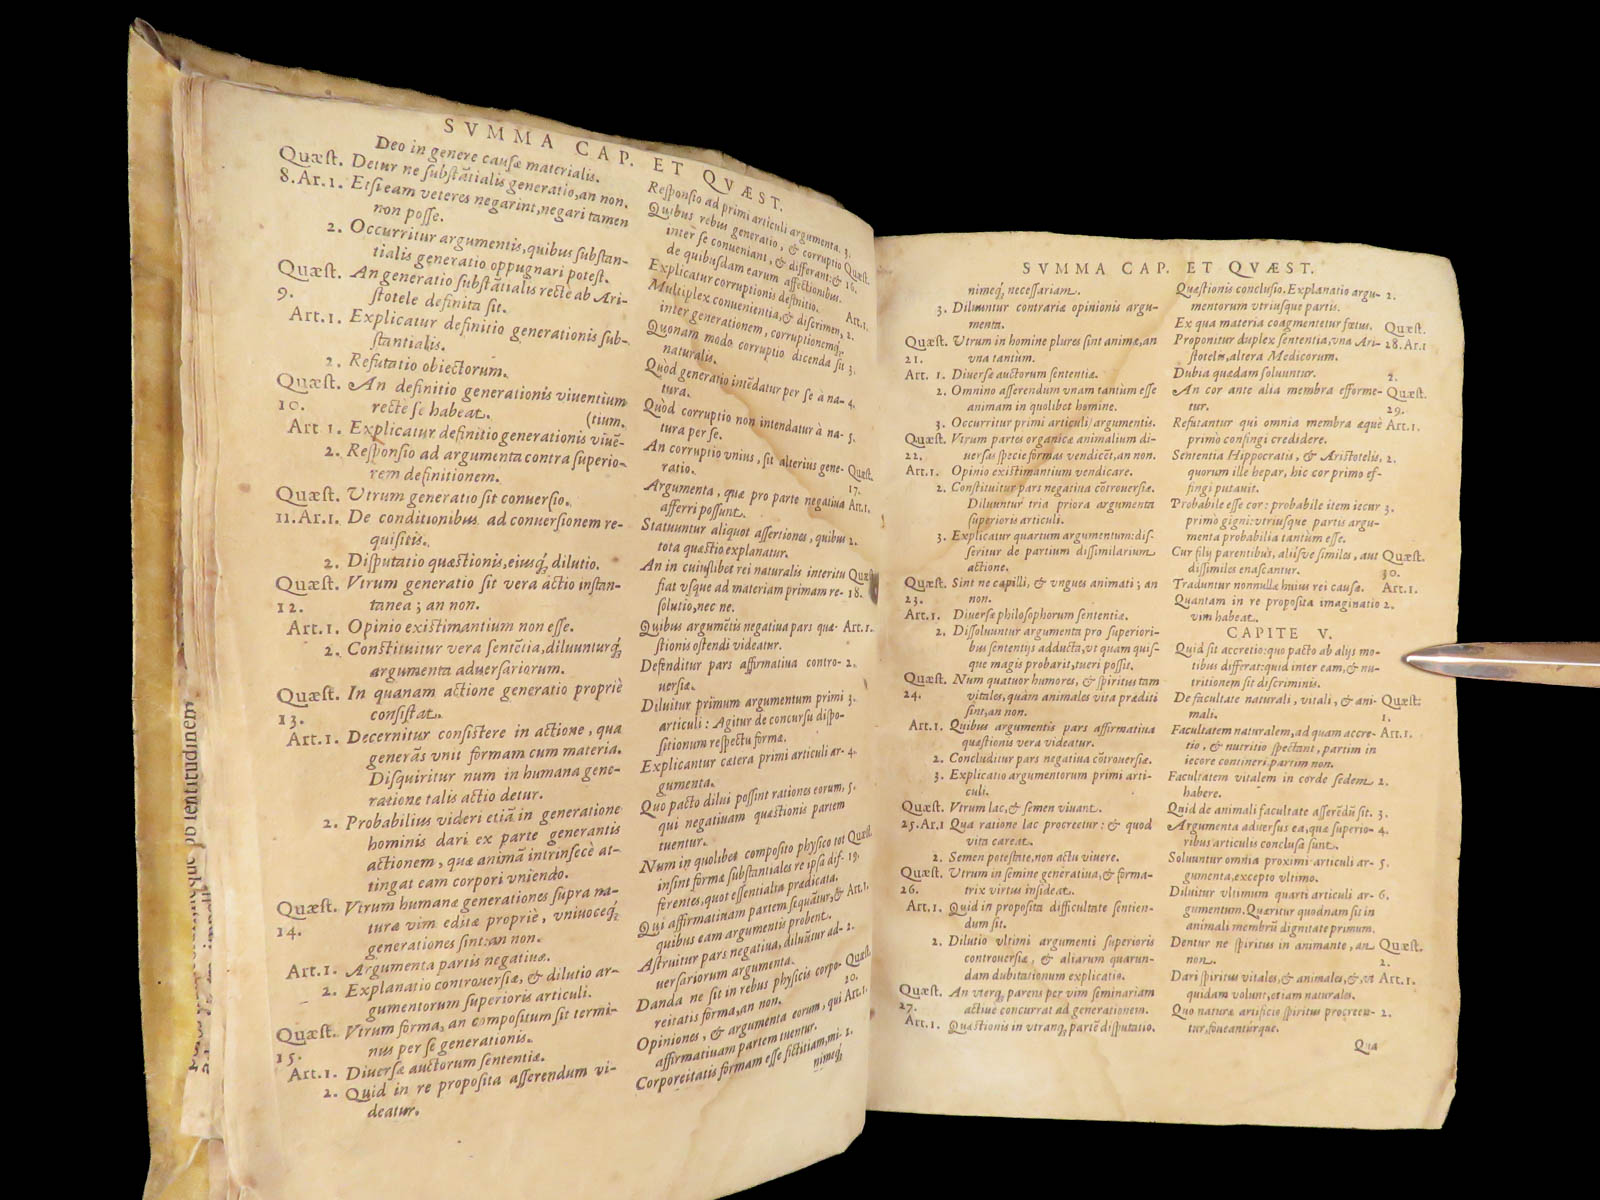 SVMMA CAP. ET QVÆST.
Deo in genere causæ materialis.
Quæst. Detur ne substātialis generatio, an non.
8. Ar. 1. Etsi eam veteres negarint, negari tamen
non posse.
2. Occurritur argumentis, quibus substan-
tialis generatio oppugnari potest.
Quæst. An generatio substātialis recte ab Ari-
9. stotele definita sit.
Art. 1. Explicatur definitio generationis sub-
stantialis.
2. Refutatio obiectorum.
Quæst. An definitio generationis viuentium
10. recte se habeat. (tium.
Art 1. Explicatur definitio generationis viuē-
2. Responsio ad argumenta contra superio-
rem definitionem.
Quæst. Utrum generatio sit conuersio.
11. Ar. 1. De conditionibus ad conuersionem re-
quisitis.
2. Disputatio quæstionis, eiusq; dilutio.
Quæst. Vtrum generatio sit vera actio instan-
12. tanea; an non.
Art. 1. Opinio existimantium non esse.
2. Constituitur vera sentētia, diluunturq;
argumenta aduersariorum.
Quæst. In quanam actione generatio propriè
13. consistat.
Art. 1. Decernitur consistere in actione, qua
generās vnit formam cum materia.
Disquiritur num in humana gene-
ratione talis actio detur.
2. Probabilius videri etiā in generatione
hominis dari ex parte generantis
actionem, quæ animā intrinsecè at-
tingat eam corpori vniendo.
Quæst. Vtrum humanæ generationes supra na-
14. turæ vim editæ propriè, vniuoceq;
generationes sint: an non.
Art. 1. Argumenta partis negatiuæ.
2. Explanatio controuersiæ, & dilutio ar-
gumentorum superioris articuli.
Quæst. Vtrum forma, an compositum sit termi-
15. nus per se generationis.
Art. 1. Diuersæ auctorum sententiæ.
2. Quid in re proposita asserendum vi-
deatur.
Responsio ad primi articuli argumenta. 3.
Quibus rebus generatio, & corruptio Quæst.
inter se conueniant, & differant: & 16.
de quibusdam earum affectionibus.
Explicatur corruptionis definitio. Art. 1.
Multiplex conuenientia, & discrimen, 2.
inter generationem, corruptionemq;
Quonam modo corruptio dicenda sit 3.
naturalis.
Quòd generatio intēdatur per se à na- 4.
tura.
Quòd corruptio non intendatur à na- 5.
tura per se.
An corruptio vnius, sit alterius gene- Quæst.
ratio. 17.
Argumenta, quæ pro parte negatiua Art. 1.
afferri possunt.
Statuuntur aliquot assertiones, quibus 2.
tota quæstio explanatur.
An in cuiuslibet rei naturalis interitu Quæst
fiat vsque ad materiam primam re- 18.
solutio, nec ne.
Quibus argumētis negatiua pars quæ- Art. 1.
stionis ostendi videatur.
Defenditur pars affirmatiua contro- 2.
uersiæ.
Diluitur primum argumentum primi 3.
articuli: Agitur de concursu dispo-
sitionum respectu formæ.
Explicantur cætera primi articuli ar- 4.
gumenta.
Quo pacto dilui possint rationes eorum, 5.
qui negatiuam quæstionis partem
tuentur.
Num in quolibet composito physico tot Quæst.
insint formæ substantiales re ipsa dif- 19.
ferentes, quot essentialia prædicata.
Qui affirmatiuam partem sequātur, & Art. 1.
quibus eam argumentis probent.
Astruitur pars negatiua, diluūtur ad- 2.
uersariorum argumenta.
Danda ne sit in rebus physicis corpo- Quæst.
reitatis forma, an non. 20.
Opiniones, & argumenta eorum, qui Art. 1.
affirmatiuam partem tuentur.
Corporeitatis formam esse fictitiam, mi- 2.
nimeq;
SVMMA CAP. ET QVÆST.
nimeq; necessariam.
3. Diluuntur contrariæ opinionis argu-
menta.
Quæst. Vtrum in homine plures sint animæ, an
21. vna tantùm.
Art. 1. Diuersæ auctorum sententiæ.
2. Omnino asserendum vnam tantùm esse
animam in quolibet homine.
3. Occurritur primi articuli argumentis.
Quæst. Vtrum partes organicæ animalium di-
22. uersas specie formas vendicēt, an non.
Art. 1. Opinio existimantium vendicare.
2. Constituitur pars negatiua cōtrouersiæ.
Diluuntur tria priora argumenta
superioris articuli.
3. Explicatur quartum argumentum: dis-
seritur de partium dissimilarium
actione.
Quæst. Sint ne capilli, & vngues animati; an
23. non.
Art. 1. Diuersæ philosophorum sententiæ.
2. Dissoluuntur argumenta pro superiori-
bus sententijs adducta, vt quam quis-
que magis probarit, tueri possit.
Quæst. Num quatuor humores, & spiritus tam
24. vitales, quàm animales vita præditi
sint, an non.
Art. 1. Quibus argumentis pars affirmatiua
quæstionis vera videatur.
2. Concluditur pars negatiua cōtrouersiæ.
3. Explicatio argumentorum primi arti-
culi.
Quæst. Vtrum lac, & semen viuant.
25. Ar. 1 Qua ratione lac procreetur: & quod
vita careat.
2. Semen potestate, non actu viuere.
Quæst. Vtrum in semine generatiua, & forma-
26. trix virtus insideat.
Art. 1. Quid in proposita difficultate sentien-
dum sit.
2. Dilutio vltimi argumenti superioris
controuersiæ, & aliarum quarun-
dam dubitationum explicatio.
Quæst. An vterq; parens per vim seminariam
27. actiue concurrat ad generationem.
Art. 1. Quæstionis in vtranq; partē disputatio.
Quæstionis conclusio. Explanatio argu- 2.
mentorum vtriusque partis.
Ex qua materia coagmentetur fœtus. Quæst.
Proponitur duplex sententia, vna Ari- 28. Ar. 1
stotelis, altera Medicorum.
Dubia quædam soluuntur. 2.
An cor ante alia membra efforme- Quæst.
tur. 29.
Refutantur qui omnia membra æquè Art. 1.
primò confingi credidere.
Sententia Hippocratis, & Aristotelis, 2.
quorum ille hepar, hic cor primo ef-
fingi putauit.
Probabile esse cor: probabile item iecur 3.
primo gigni: vtriusque partis argu-
menta probabilia tantùm esse.
Cur filij parentibus, alijsve similes, aut Quæst.
dissimiles enascantur. 30.
Traduntur nonnullæ huius rei causæ. Art. 1.
Quantam in re proposita imaginatio 2.
vim habeat.
CAPITE V.
Quid sit accretio: quo pacto ab alijs mo-
tibus differat: quid inter eam, & nu-
tritionem sit discriminis.
De facultate naturali, vitali, & ani- Quæst:
mali. 1.
Facultatem naturalem, ad quam accre- Art. 1.
tio, & nutritio spectant, partim in
iecore contineri, partim non.
Facultatem vitalem in corde sedem 2.
habere.
Quid de animali facultate asserēdū sit. 3.
Argumenta aduersus ea, quæ superio- 4.
ribus articulis conclusa sunt.
Soluuntur omnia proximi articuli ar- 5.
gumenta, excepto vltimo.
Diluitur vltimum quarti articuli ar- 6.
gumentum. Quæritur quodnam sit in
animali membrū dignitate primum.
Dentur ne spiritus in animante, an Quæst.
non. 2.
Dari spiritus vitales, & animales, & vt Art. 1.
quidam volunt, etiam naturales.
Quo naturæ artificio spiritus procreen- 2.
tur, foueanturque.
Qua